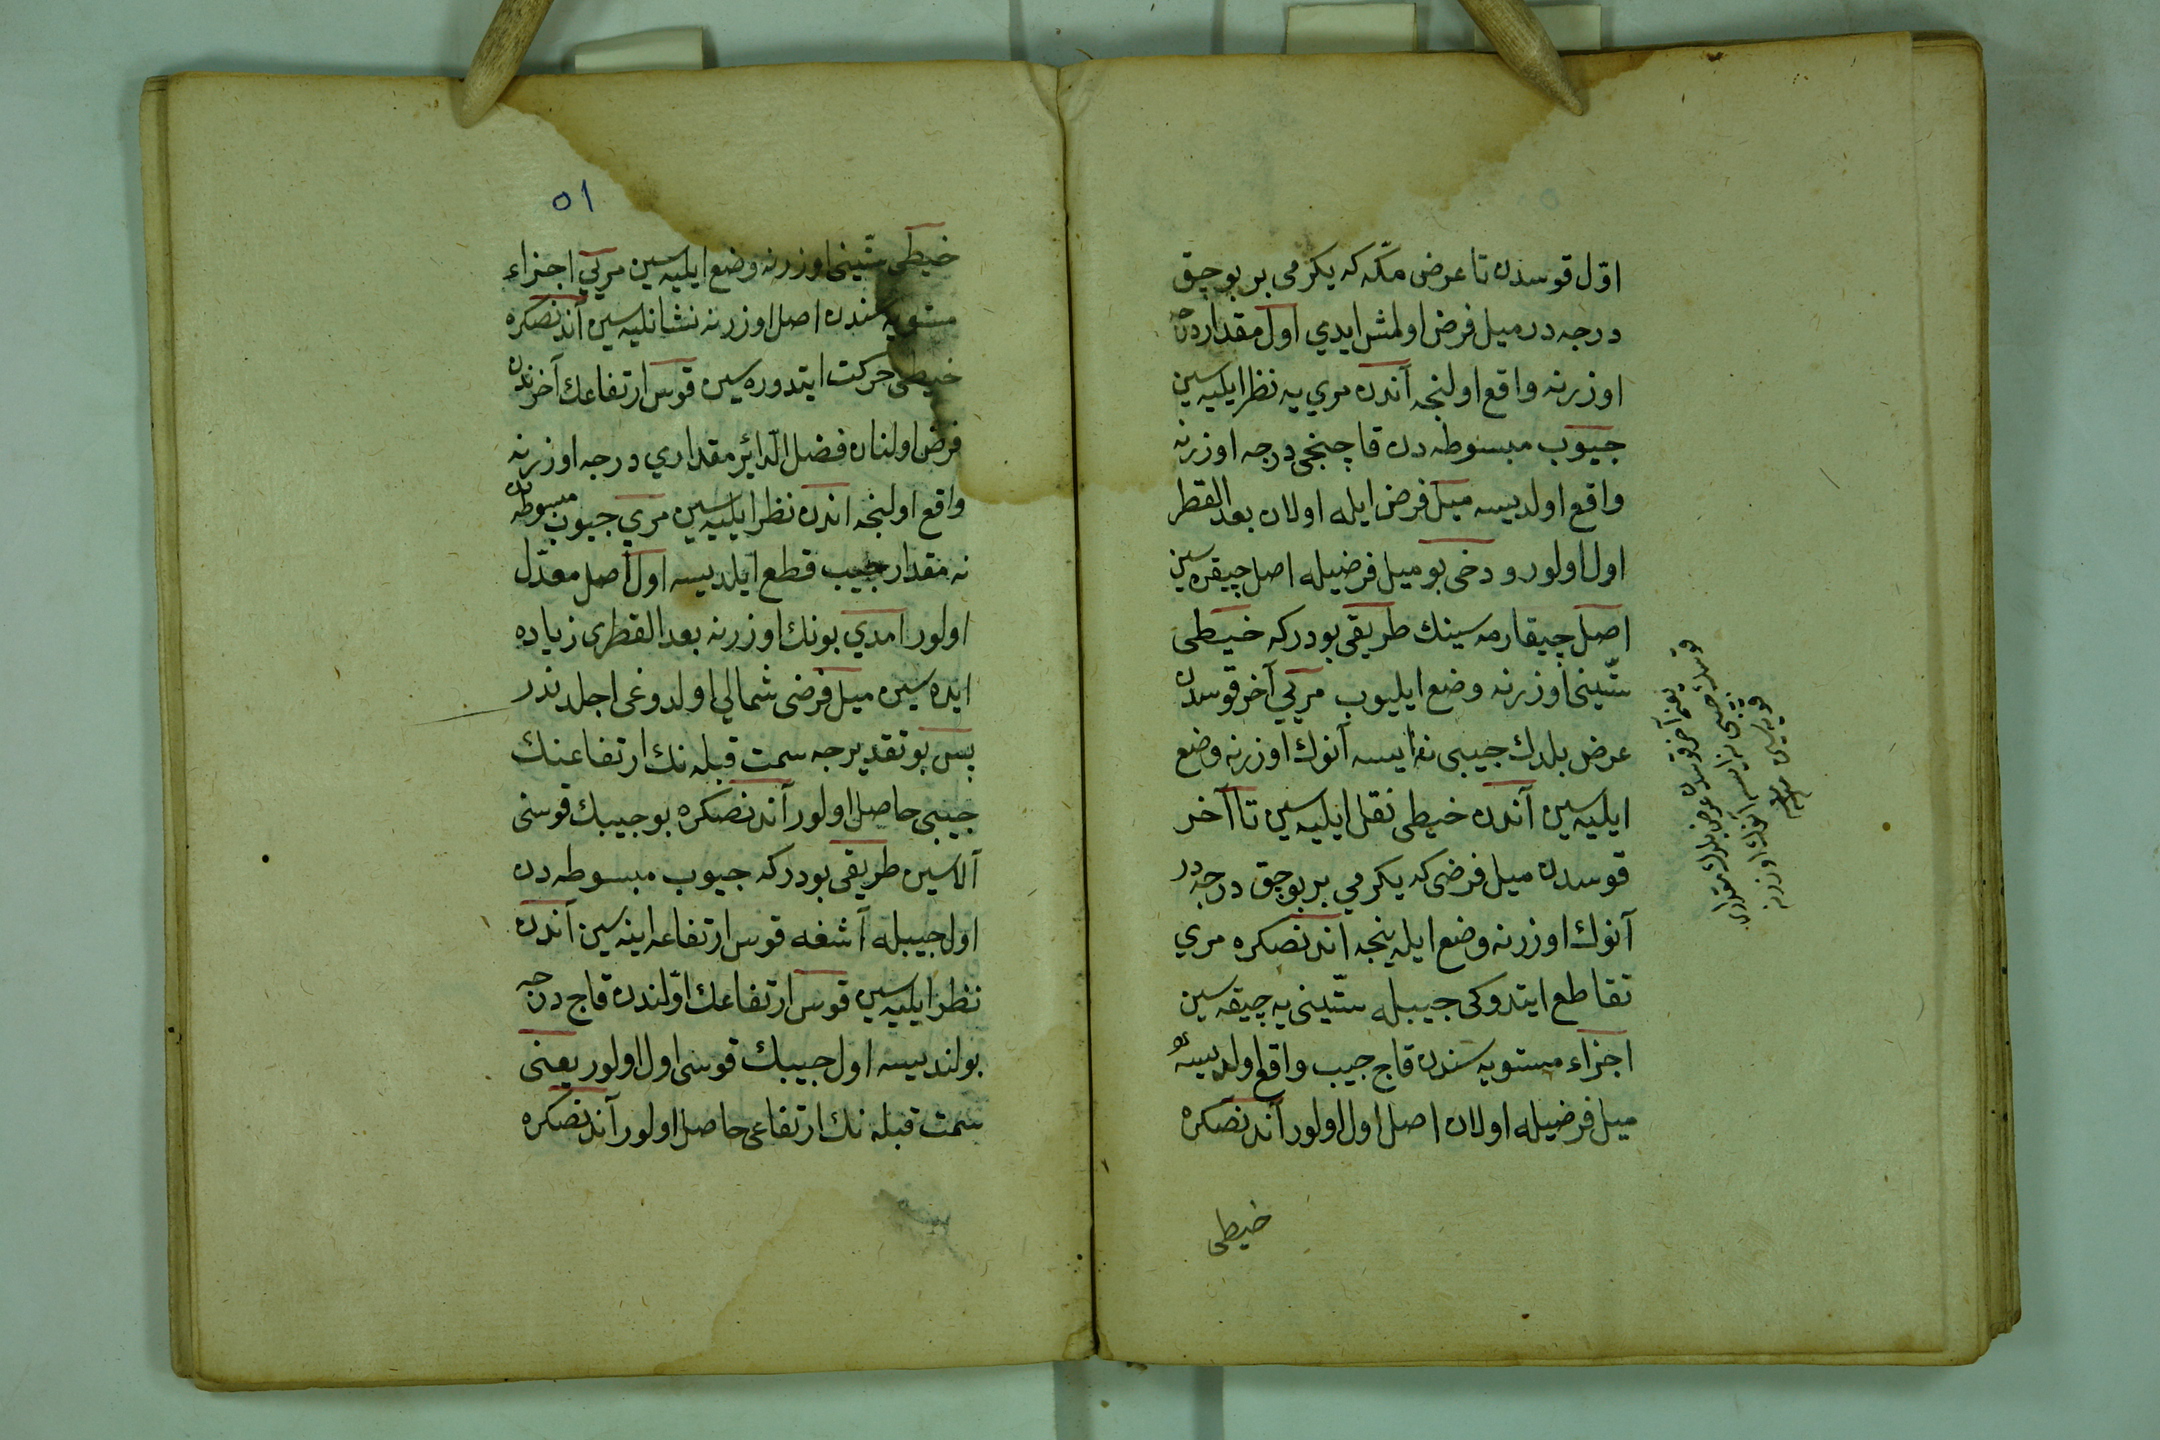 اوّل قوسدن تا عرض مكّه كه يكرمى بر بوچق
درجه در ميل فرض اولمش ايدي اول مقدار درجه
اوزرنه واقع اولنجه آندن مري يه نظر ايليه سين
جيوب مبسوطه دن قاچنجى درجه اوزرنه
واقع اولديسه ميل فرض ايله اولان بعد القطر
اول اولور و دخى بو ميل فرضيله اصل چيقره سين
اصل چيقارمه سينك طريقى بودركه خيطى
ستّينى اوزرنه وضع ايليوب مريي آخر قوسدن
عرض بلدك جيبى نه ايسه آنوك اوزرنه وضع
ايليه سين آندن خيطى نقل ايليه سين تا آخر
قوسدن ميل فرضى كه يكرمي بر بوچق درجه در
آنوك اوزرنه وضع ايله ينجه اندنصكره مري
تقاطع ايتدوكى جيبله ستّينى يه چيقه سين
اجزاء مستويه سندن قاچ جيب واقع اولديسه بو
ميل فرضيله اولان اصل اول اولور آندنصكره
يعنى آخر قوسدن عرض بلدك مقدارى
خيطى
٥١
خيطى ستّينى اوزرنه وضع ايليه سين مريي اجزاء
مستويه سندن اصل اوزرنه نشانليه سين آندنصكره
خيطى حركت ايتدوره سين قوس ارتفاعك آخرندن
فرض اولنان فضل الدّائر مقداري درجه اوزرنه
واقع اولنجه اندن نظر ايليه سين مري جيوب مبسوطه دن
نه مقدار جيب قطع ايلديسه اول اصل معدّل
اولور امدي بونك اوزرنه بعد القطرى زياده
ايده سين ميل فرضى شمالي اولدوغى اجلدندر
پس بو تقديرجه سمت قبله نك ارتفاعينك
جيبى حاصل اولور آندنصكره بو جيبك قوسنى
آلاسين طريقى بودركه جيوب مبسوطه دن
اول جيبله آشغه قوس ارتفاعه اينه سين آندن
نظر ايليه سين قوس ارتفاعك اوّلندن قاچ درجه
بولنديسه اول جيبك قوسى اول اولور يعنى
سمت قبله نك ارتفاعى حاصل اولور آندنصكره